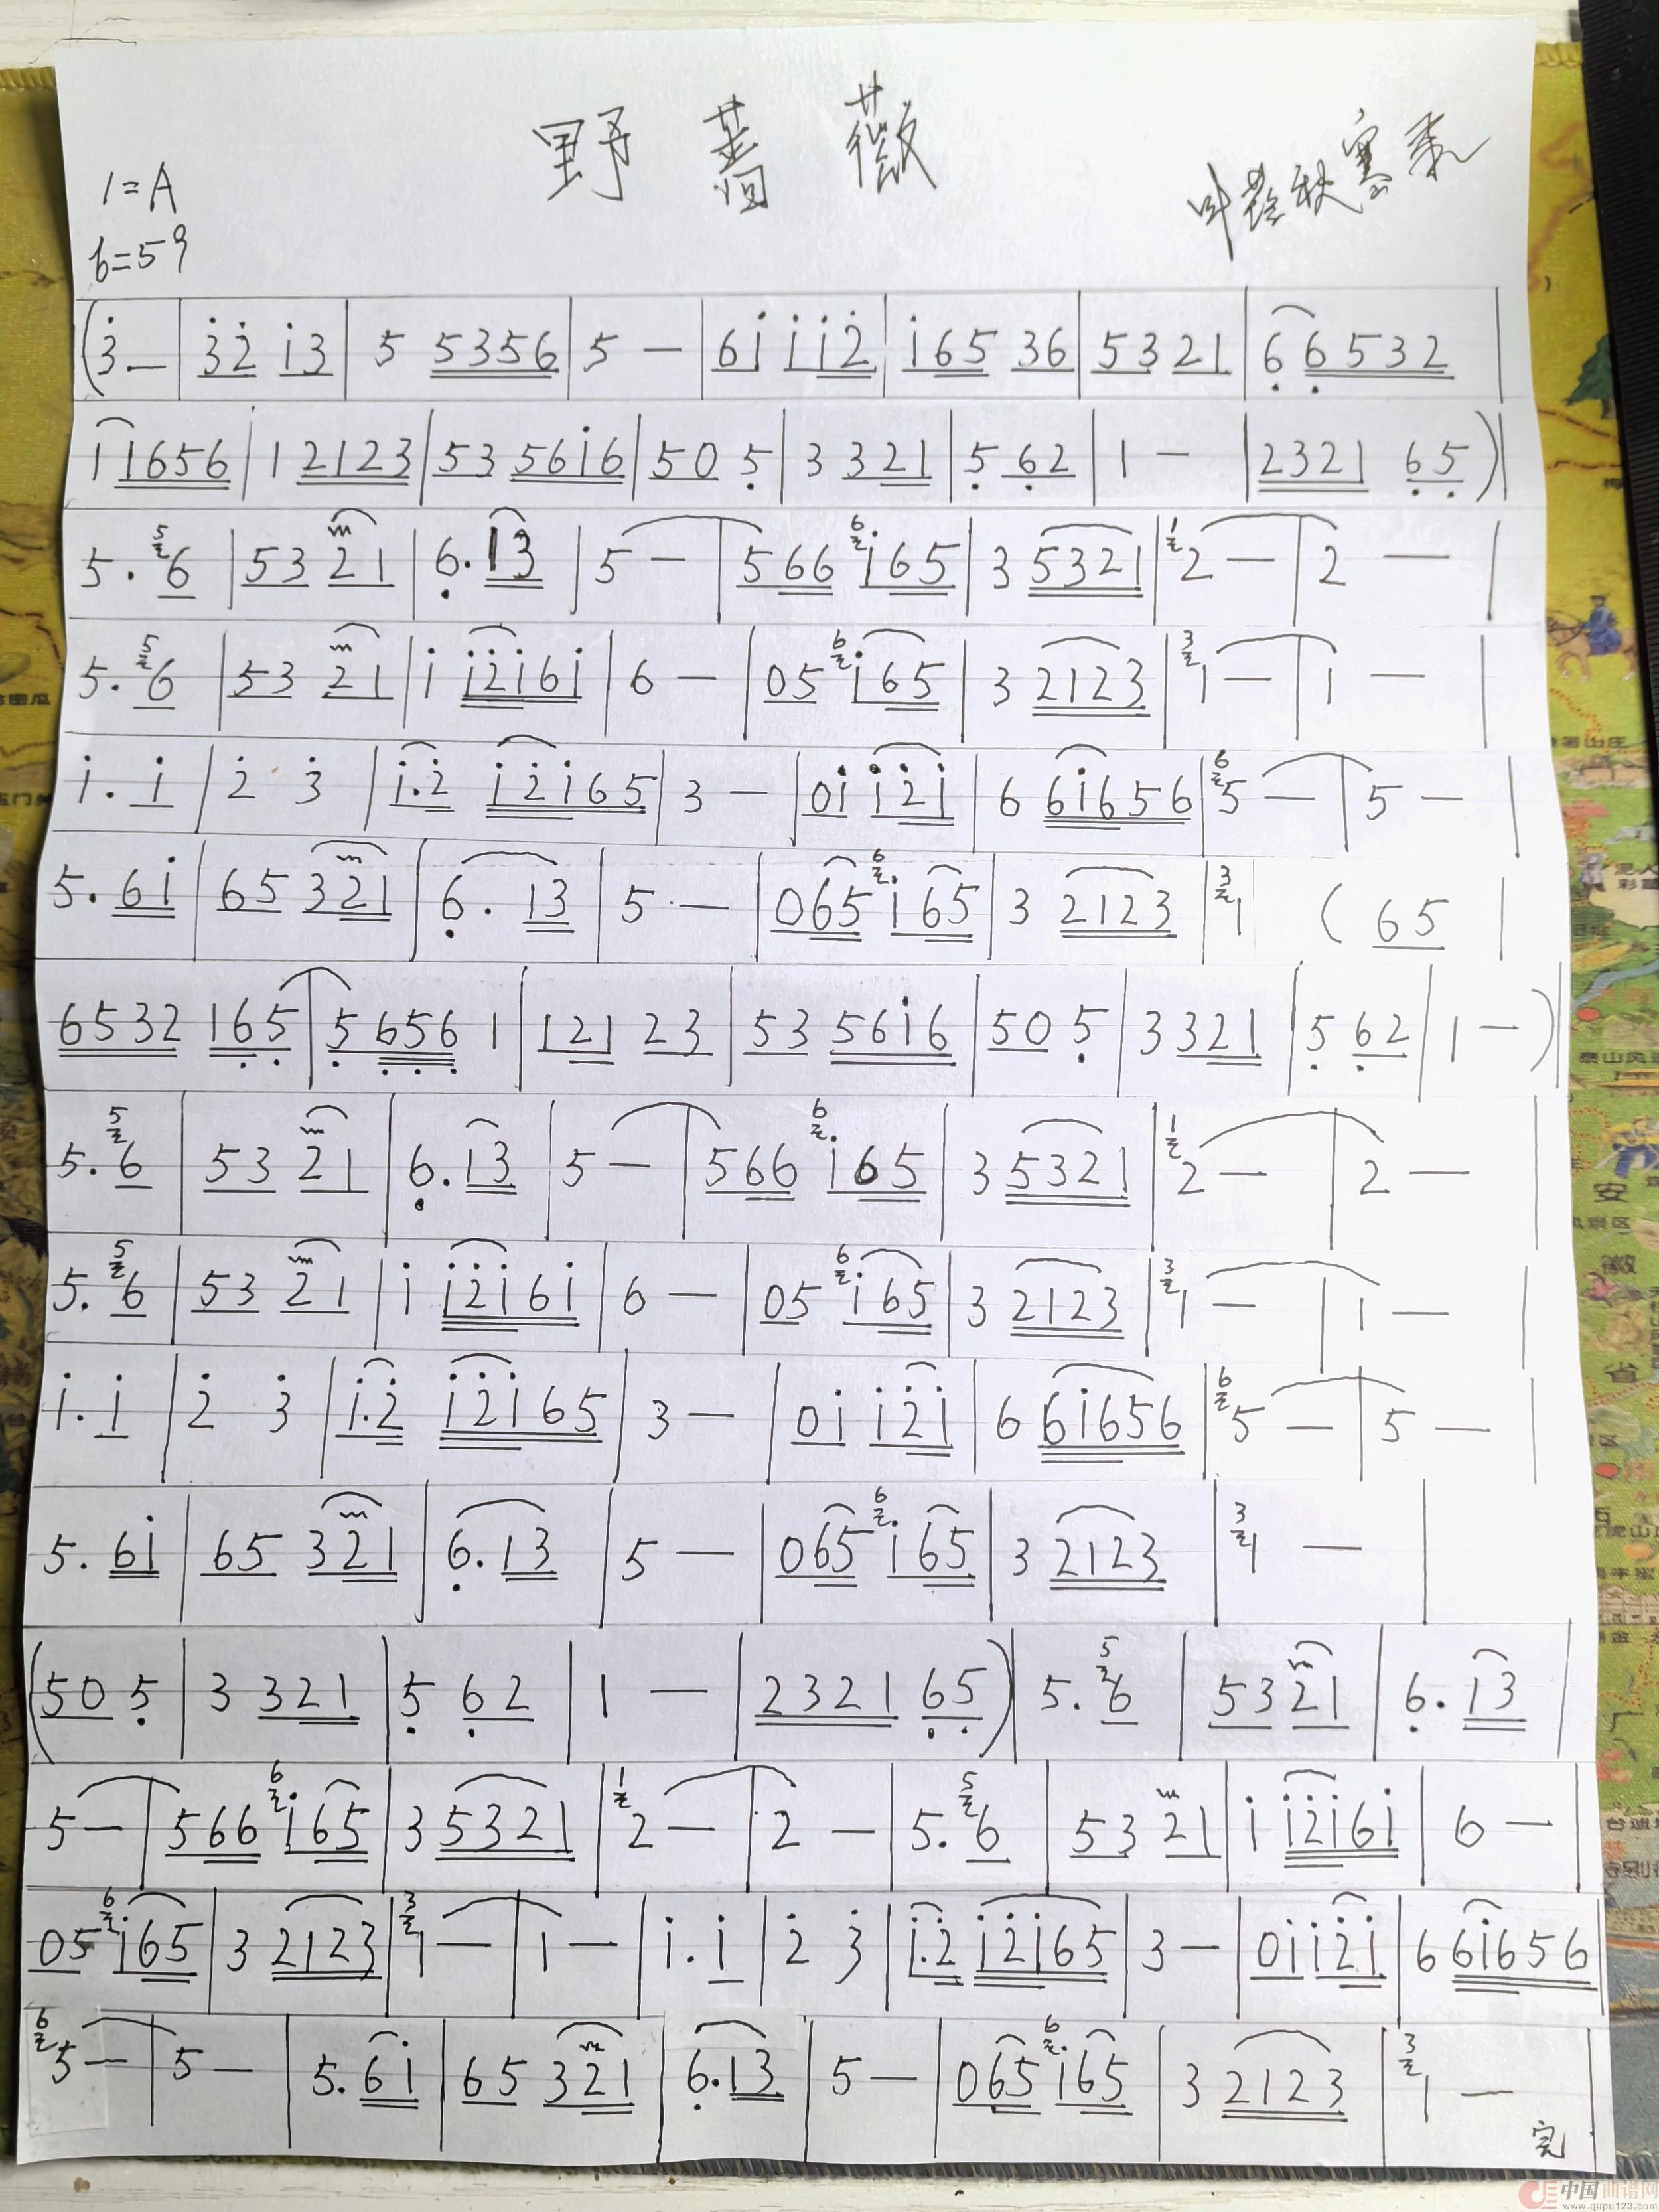 野蔷薇
1=A
6=59
叶落秋寒
(3. — | 3 2 i 3 | 5 5356 | 5 — | 6i ii2 | i65 36 | 53 21 | 6 6532 |
1 1656 | 1 2123 | 53 56i6 | 50 5 | 3 321 | 5 62 | 1 — | 2321 65) |
5. 6 | 53 21 | 6. 13 | 5 — | 566 i65 | 3 5321 | 2 — | 2 — |
5. 6 | 53 21 | i i2i6i | 6 — | 05 i65 | 3 2123 | 1 — | 1 — |
i. i | 2 3 | i.2 i2i65 | 3 — | 0i i2i | 6 6i656 | 5 — | 5 — |
5. 6i | 65 321 | 6. 13 | 5 — | 065 i65 | 3 2123 | 1 ( 65 |
6532 165 | 5 656 1 | 121 23 | 53 56i6 | 50 5 | 3 321 | 5 62 | 1 — ) |
5. 6 | 53 21 | 6. 13 | 5 — | 566 i65 | 3 5321 | 2 — | 2 — |
5. 6 | 53 21 | i i2i6i | 6 — | 05 i65 | 3 2123 | 1 — | 1 — |
i. i | 2 3 | i.2 i2i65 | 3 — | 0i i2i | 6 6i656 | 5 — | 5 — |
5. 6i | 65 321 | 6. 13 | 5 — | 065 i65 | 3 2123 | 1 — |
(50 5 | 3 321 | 5 62 | 1 — | 2321 65) | 5. 6 | 53 21 | 6. 13 |
5 — | 566 i65 | 3 5321 | 2 — | 2 — | 5. 6 | 53 21 | i i2i6i | 6 — |
05 i65 | 3 2123 | 1 — | 1 — | i. i | 2 3 | i.2 i2i65 | 3 — | 0i i2i | 6 6i656 |
5 — | 5 — | 5. 6i | 65 321 | 6. 13 | 5 — | 065 i65 | 3 2123 | 1 — |
完
中国曲谱网
www.qupu123.com